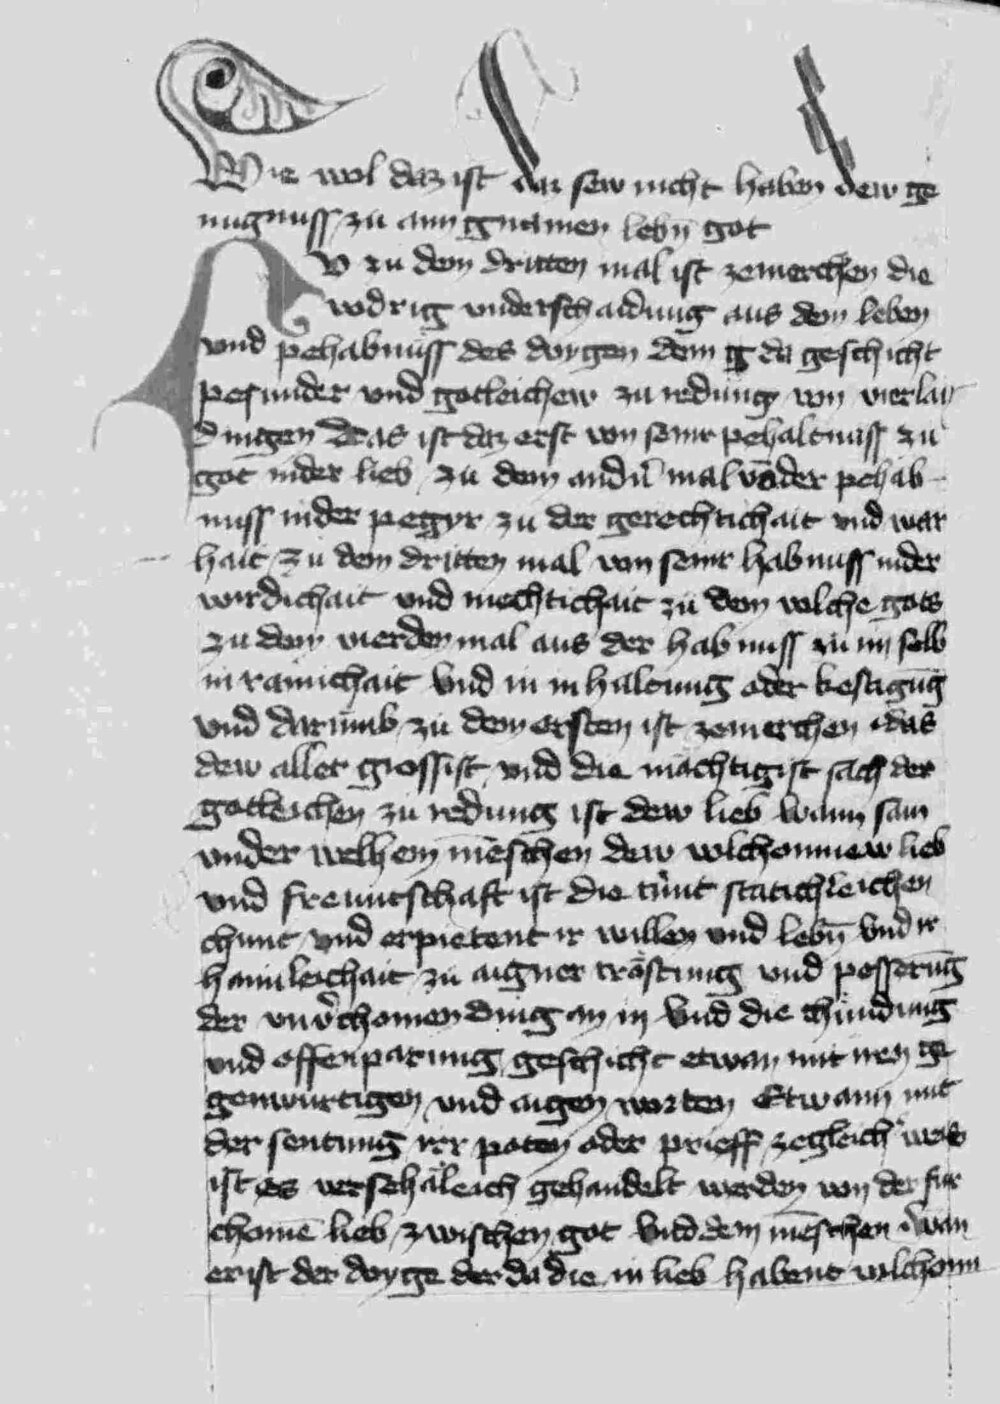 Wie wol daz ist daz sew nicht haben dew ge
nugnuss zu aim gnamen lebn̄ got
Nv zu dem dritten mal ist zemerchen die
wdrig vnderschaidung aus dem leben
vnd pehabnuss des doygen dem da geschicht
pesunder vnd gotleichew zu redung von vierlai
dingen Das ist daz erst von seinr pehaltnuss zu
got inder lieb zu dem andn̄ mal vō der pehab
nuss inder pegyr zu der gerechtichait vnd war
hait zu dem dritten mal von seinr habnuss inder
wirdichait vnd mechtichait zu dem volche gots
zu dem vierden mal aus der habnuss zu im selb
in rainichait vnd in inhaltung oder kestigūg
vnd darumb zu dem ersten ist zemerchen das
dew aller grossist vnd die mächtigist sach der
gotleichen zu redung ist dew lieb wann sam
vnder welhem mēschen dew volchomnew lieb
vnd frewntschaft ist die tūnt stätichleichen
chunt vnd erpietent ir willen vnd lebn̄ vnd ir
haimleichait zu aigner tröstung vnd pesserūg
der chomen ding an in vnd die chündung
vnd offenparung geschicht etwan mit iren ge
genwürtigen vnd aigen worten Etwann mit
der sentung irr poten oder prieff zegleich weis
ist es versehäleich gehandelt werden von der für
chomē lieb zwischen got vnd dem mēschen wan
er ist der doyge der da die in lieb habent volchomn